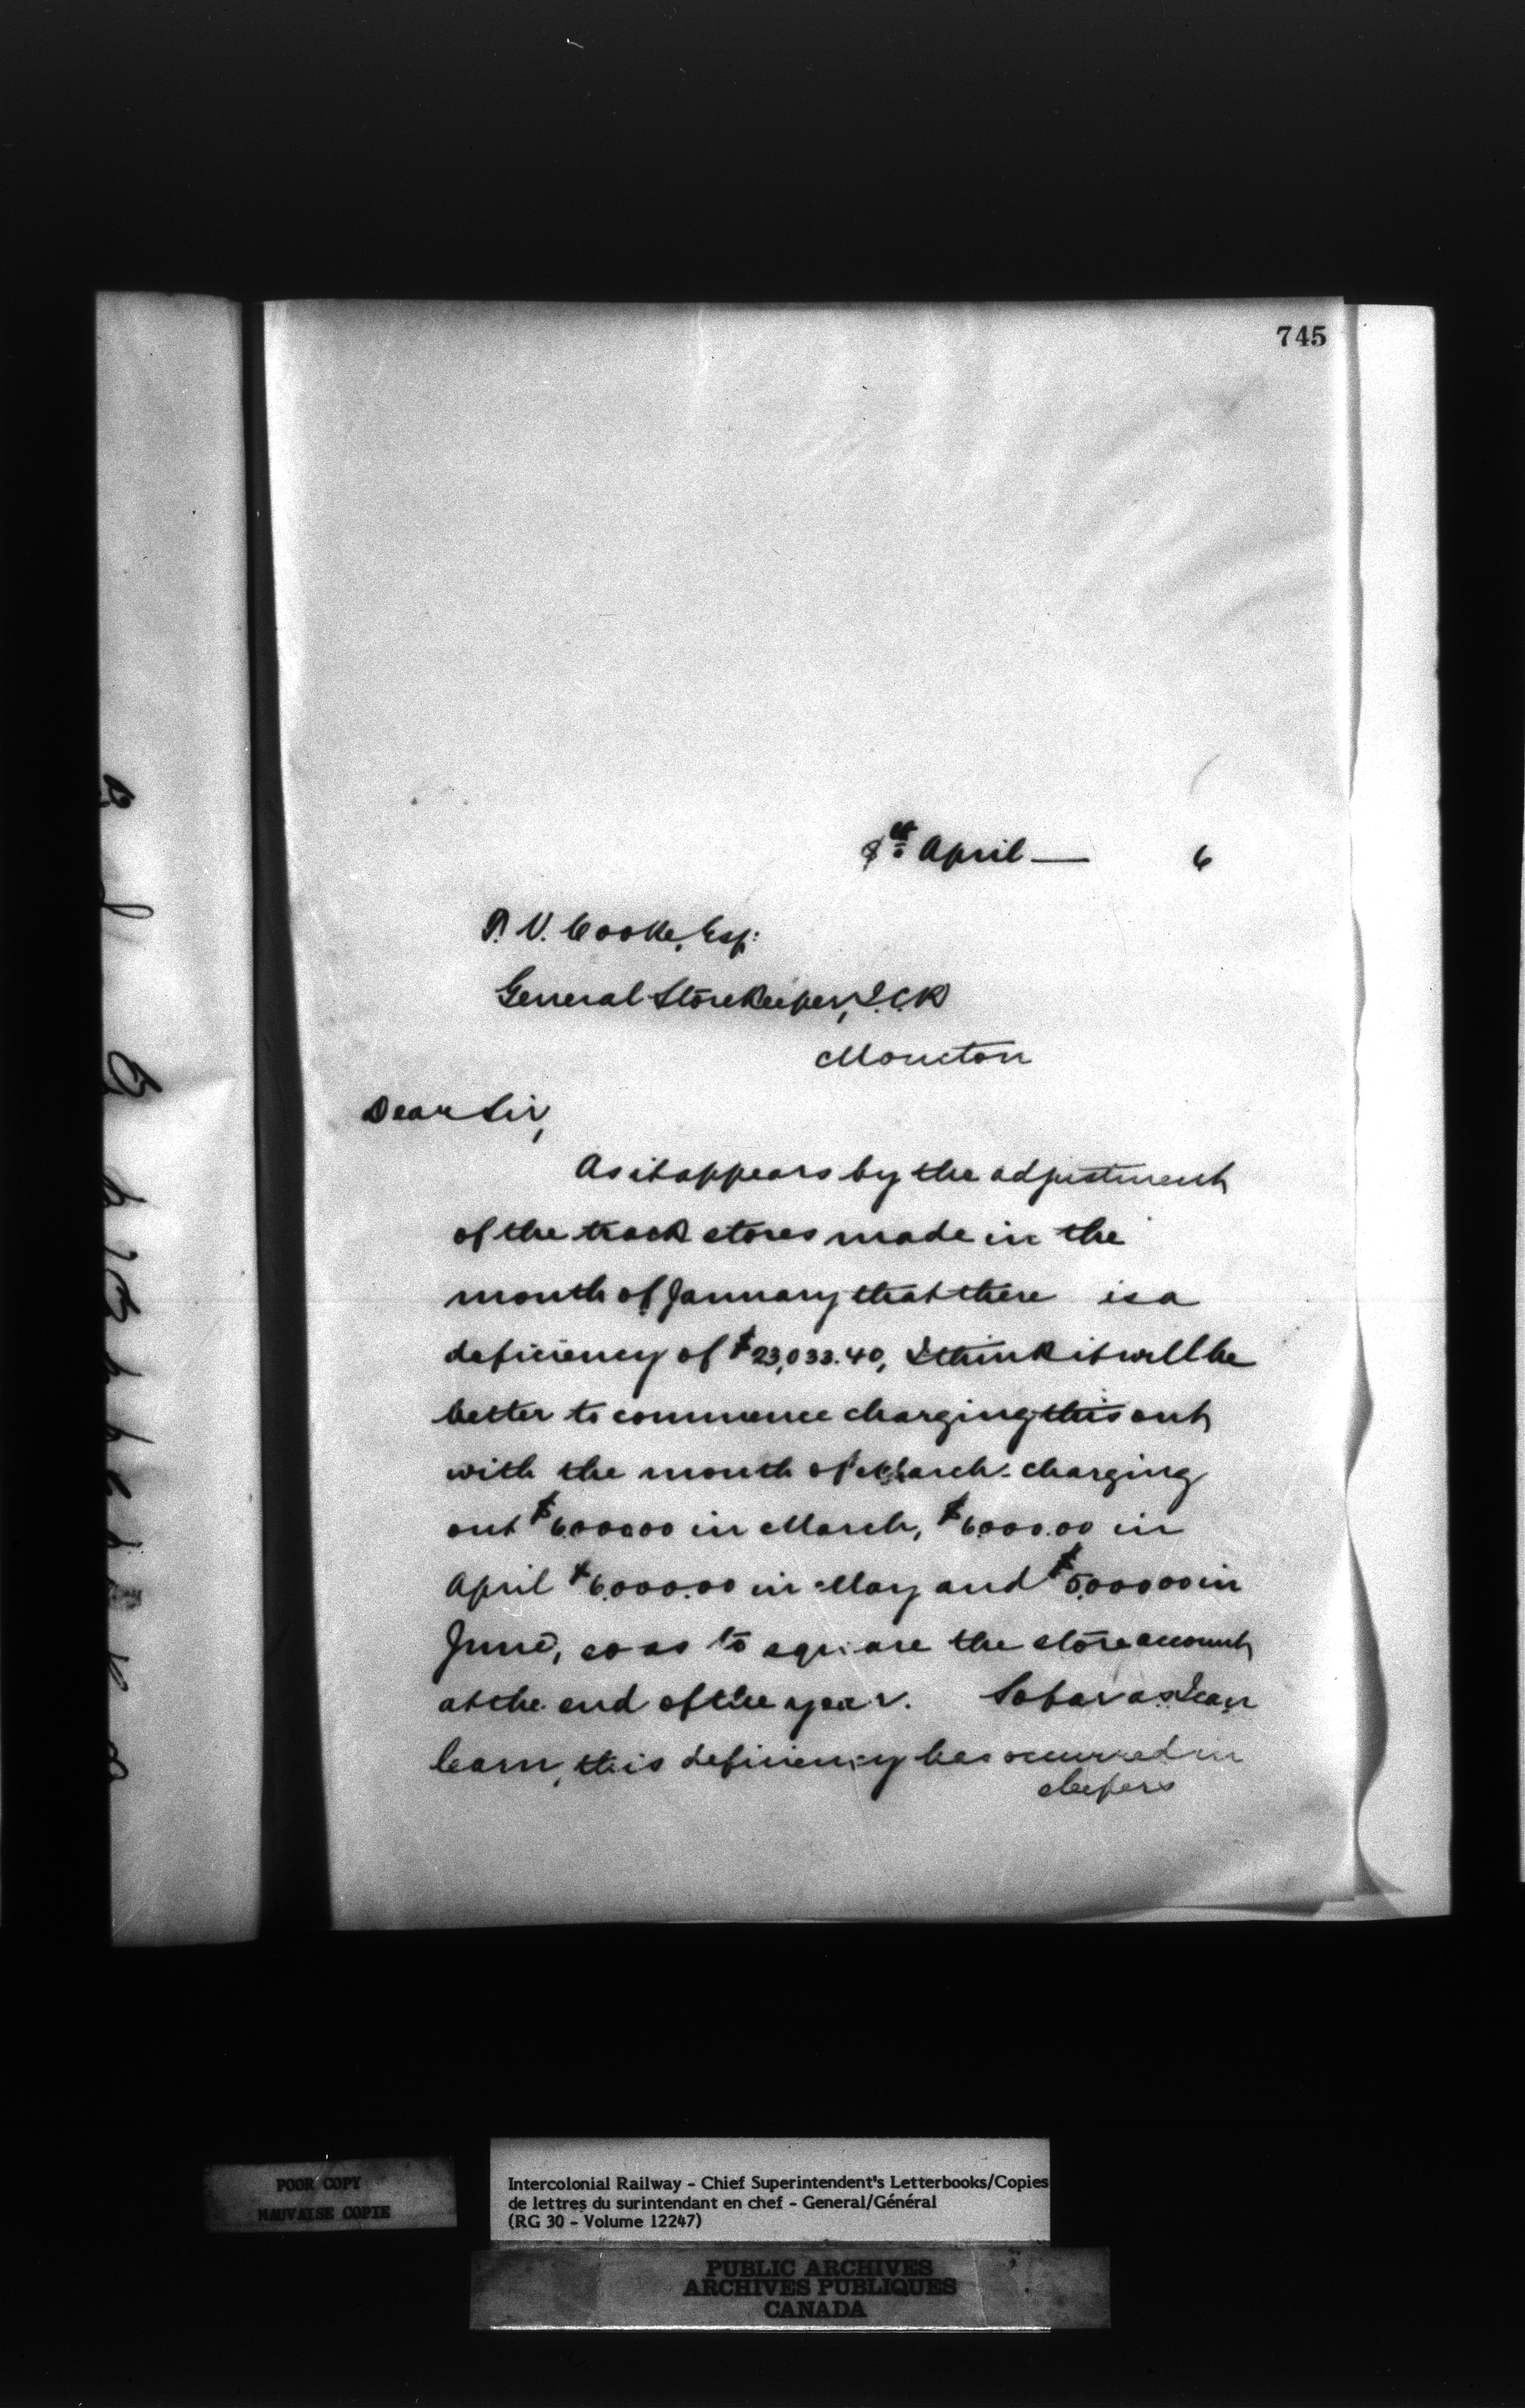 745
April — 6
P. V. Cooke, Esq:
General Storekeeper, I.C.R
Moncton
Dear Sir,
As it appears by the adjustment
of the track stores made in the
month of January that there is a
deficiency of $23,033.40, I think it will be
better to commence charging this out
with the month of March. charging
out $6000.00 in March, $6000.00 in
April $6000.00 in May and $5000.00 in
June, so as to square the store account
at the end of the year. So far as I can
learn, this deficiency has occurred in
sleepers
POOR COPY
MAUVAISE COPIE
Intercolonial Railway - Chief Superintendent's Letterbooks/Copies
de lettres du surintendant en chef - General/Général
(RG 30 - Volume 12247)
PUBLIC ARCHIVES
ARCHIVES PUBLIQUES
CANADA